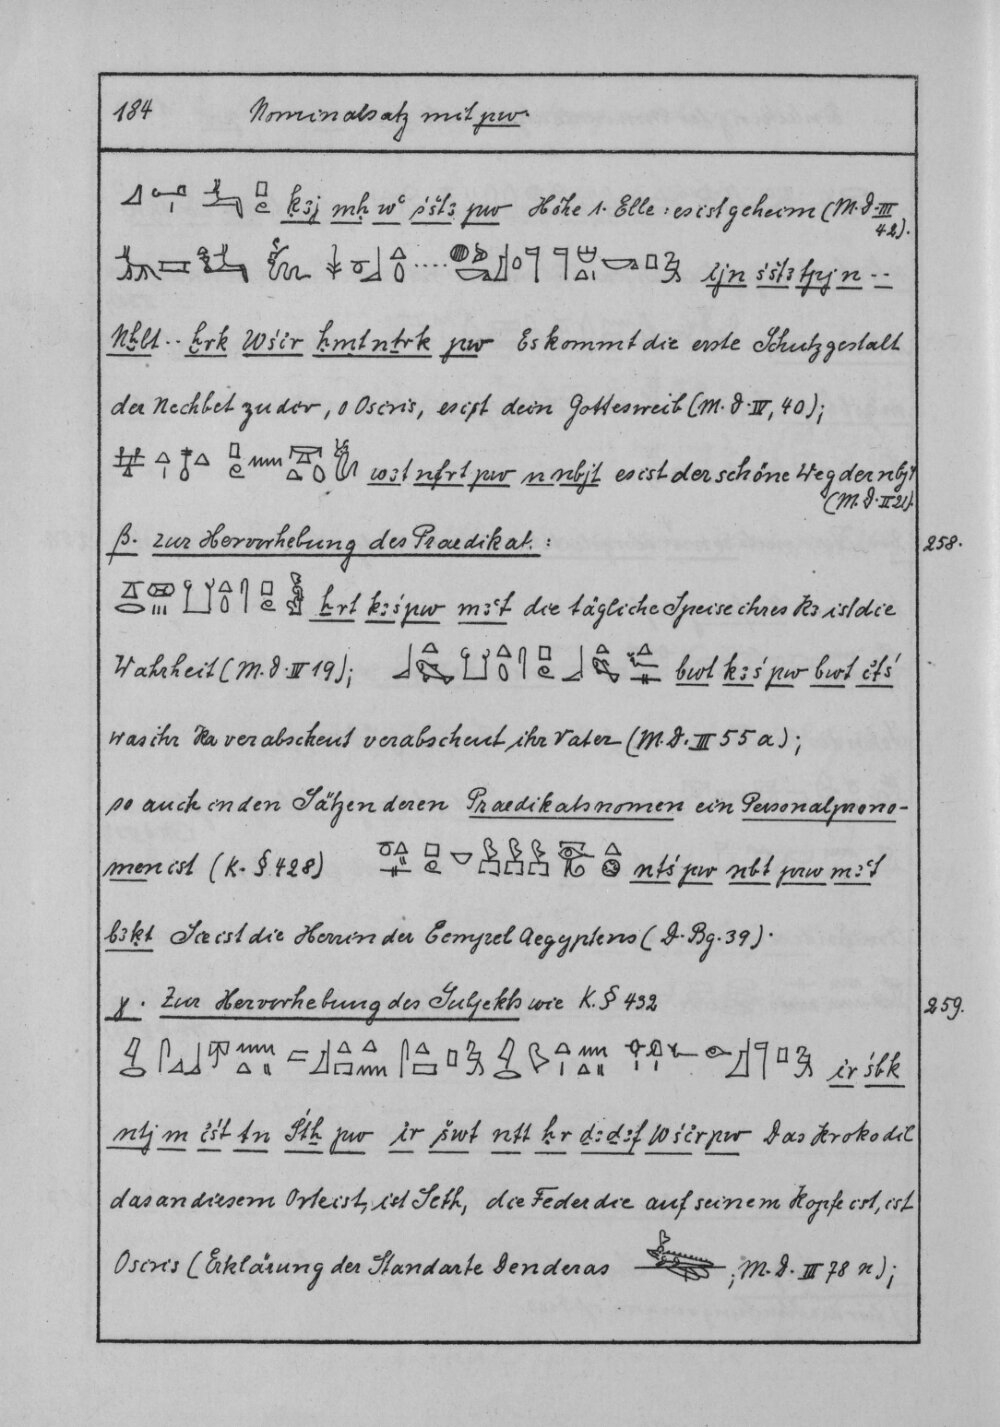 184 Nominalsatz mit pw.
ḳꜣj mḥ wꜥ śštꜣ pw Höhe 1. Elle: es ist geheim (M.D. III 42).
ijn śštꜣ tpj n --
Nḫbt .. ḫrk Wśir ḥmt nṯrk pw Es kommt die erste Schutzgestalt
der Nechbet zu dir, o Osiris, es ist dein Gottesweib (M.D. IV, 40);
wꜣt nfrt pw n nbjt es ist der schöne Weg der nbjt
(M.D. II 21).
β. zur Hervorhebung des Praedikat.: 258.
ḫrt kꜣś pw mꜣꜥt die tägliche Speise ihres Kꜣ ist die
Wahrheit (M.D. III 19); bwt kꜣś pw bwt itś
was ihr Ka verabscheut verabscheut ihr Vater (M.D. III 55 a);
so auch in den Sätzen deren Praedikatsnomen ein Personalprono-
men ist (K. § 428) ntś pw nbt prw mꜣꜥt
bꜣḳt Sie ist die Herrin der Tempel Aegyptens (D. Bg. 39).
γ. Zur Hervorhebung des Subjekts wie K. § 432 259.
ir śbk
ntj m iśt tn Śtḫ pw ir šwt ntt ḥr ḏꜣḏꜣf Wśir pw Das Krokodil
das an diesem Orte ist, ist Seth, die Feder die auf seinem Kopfe ist, ist
Osiris (Erklärung der Standarte Denderas ; M.D. III 78 n);